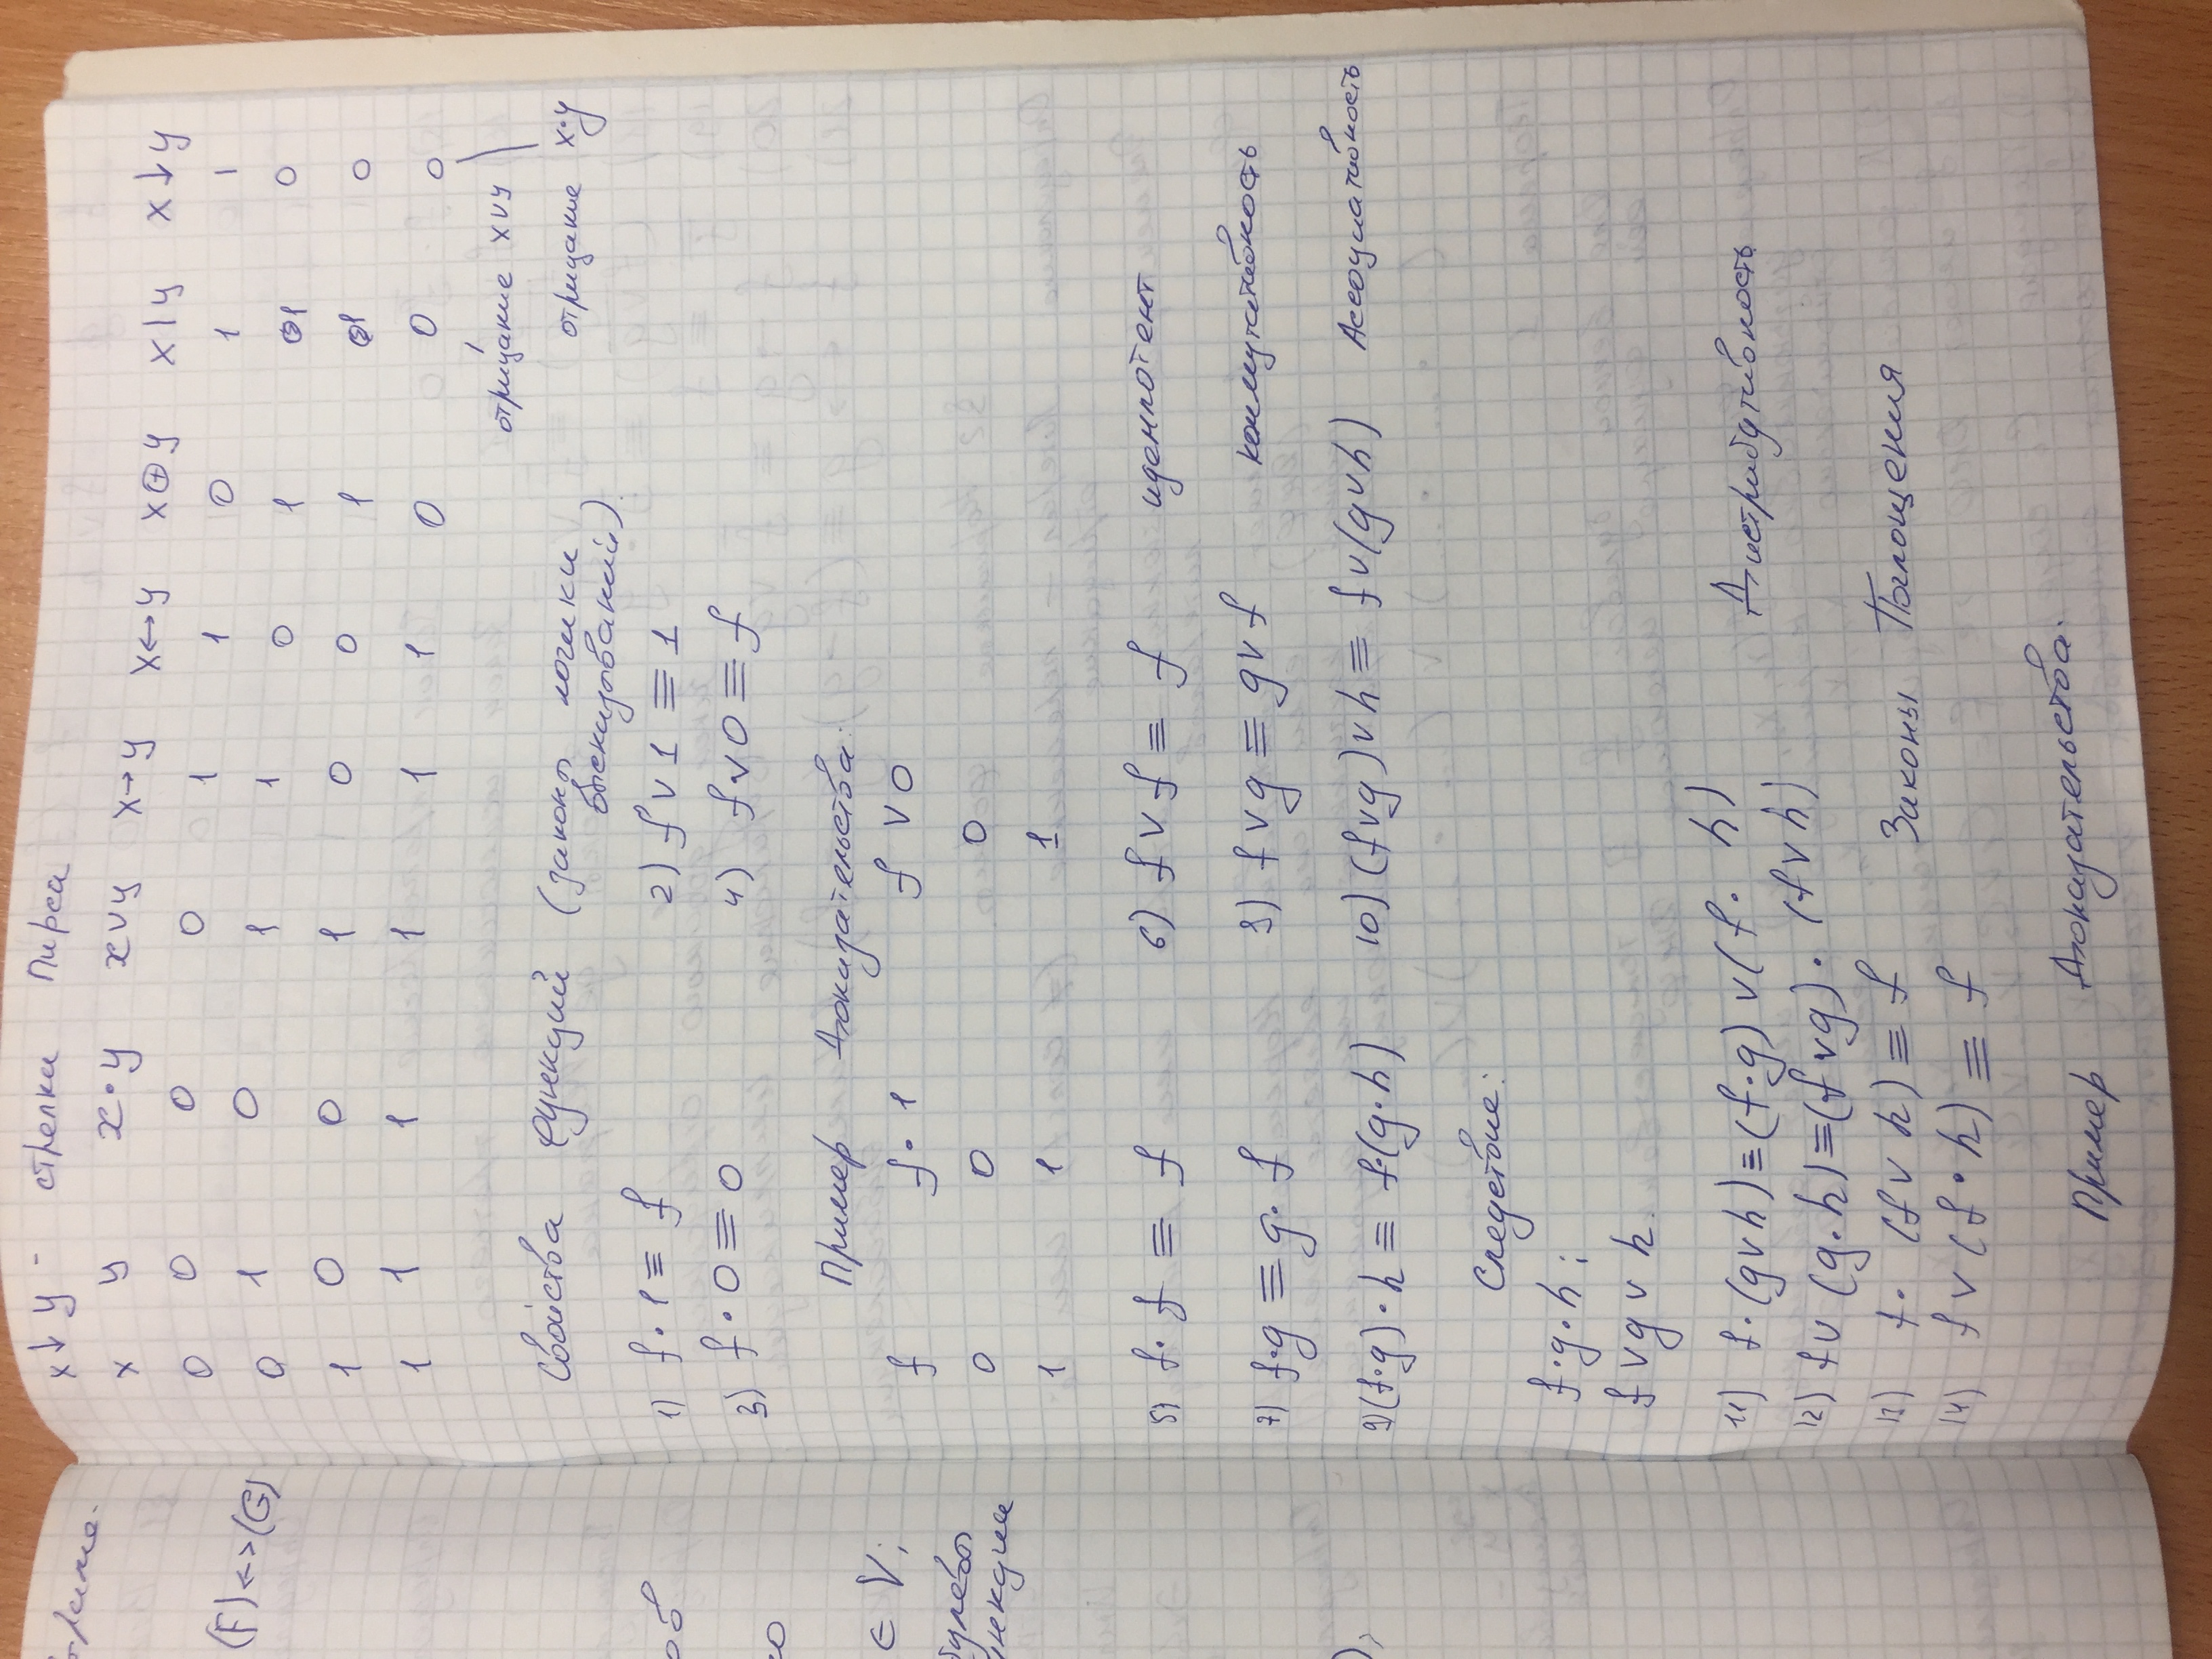 x↓y - стрелки Пирса
x y x·y x∨y x→y x↔y x⊕y x|y x↓y
0 0 0 0 1 1 0 1 1
0 1 0 1 1 0 1 1 0
1 0 0 1 0 0 1 1 0
1 1 1 1 1 1 0 0 0
отрицание x∨y
отрицание x·y
Свойства функций (законы логики
высказываний).
1) f·1≡ f 2) f∨1 ≡ 1
3) f·0≡0 4) f∨0≡f
Пример Доказательства:
f f·1 f∨0
0 0 0
1 1 1
5) f·f ≡ f 6) f∨f≡ f иденпотент
7) f·g≡g·f 8) f∨g≡g∨f коммутативность
9) (f·g)·h≡ f·(g·h) 10) (f∨g)∨h≡ f∨(g∨h) Ассоциативность
Следствие:
f·g·h;
f∨g∨h.
11) f·(g∨h)≡(f·g)∨(f·h) Дистрибутивность
12) f∨(g·h)≡(f∨g)·(f∨h)
13) f·(f∨h)≡f Законы Поглощения
14) f∨(f·h)≡f
Пример Доказательства.
(F)↔(G)
∈ V;